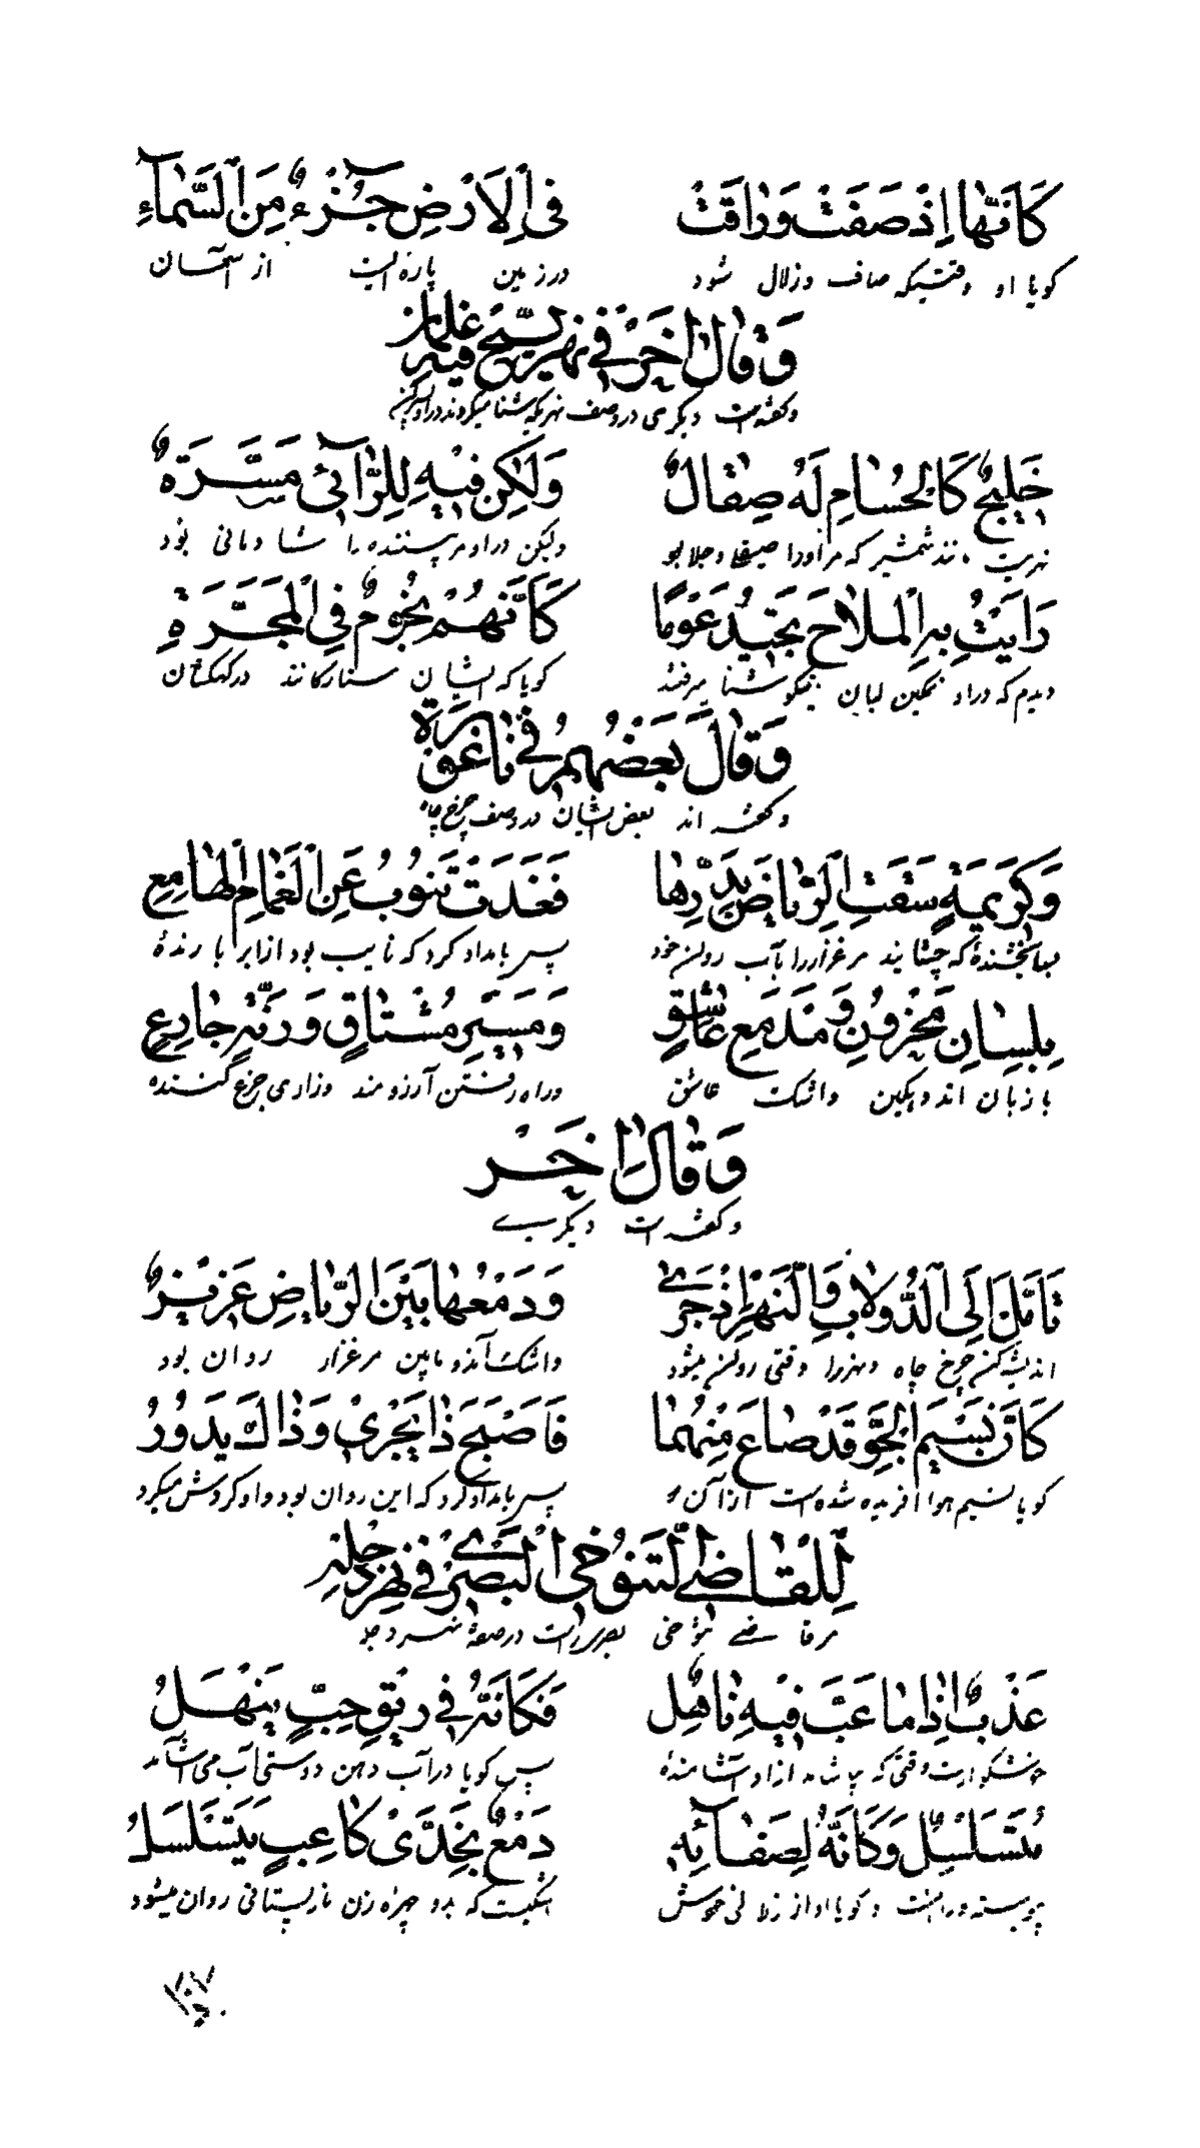 كَاَنَّهَا اِذْ صَفَتْ وَرَاقَتْ فِى الْاَرْضِ جُزْءٌ مِنَ السَّمَآءِ
گویا او وقتیکه صاف وزلال شود درزمین پارهٔ است از آسمان
وَقَالَ اٰخَرُ فِى نَهْرٍ يَسْبَحُ فِيهِ غِلْمَانٌ
وگفته است دیگری در وصف نهریکه شنا میکردند دراو
خَلِيجٌ كَالْحُسَامِ لَهُ صِقَالٌ وَلٰكِنْ فِيْهِ لِلرَّآئِى مَسَرَّةٌ
نهریست مانند شمشیر که مراورا صیقل وجلا بود ولیکن دراو مر بیننده را شادمانی بود
رَاَيْتُ بِهِ الْمِلَاحَ تُجِيْدُ عَوْمًا كَاَنَّهُمْ نُجُومٌ فِى الْمَجَرَّةِ
دیدم که دراو نمکین لبان نیکو شنا میرفتند گویا که ایشان ستارگانند درکهکشان
وَقَالَ بَعْضُهُمْ فِى نَاعُوْرَةٍ
وگفته اند بعض ایشان در وصف چرخ چاه
وَكَرِيمَةٍ سَقَتِ الرِّيَاضَ بِدَرِّهَا فَغَدَتْ تَنُوْبُ عَنِ الْغَمَامِ الْهَامِعِ
بسا بخشندهٔ که چشانید مرغزاررا بآب روان خود پس بامداد کرد که نایب بود ازابر بارندهٔ
بِلِسَانِ مَحْزُوْنٍ وَمَدْمَعِ عَاشِقٍ وَمَسِيْرِ مُشْتَاقٍ وَرَنَّةِ جَازِعٍ
بازبان اندوهگین واشک عاشق وراه رفتن آرزومند وزاری جزع کننده
وَقَالَ اٰخَرُ
وگفته است دیگرے
تَاَمَّلْ اِلَى الدُّولَابِ وَالنَّهْرِ اِذْ جَرٰى وَدَمْعُهَا بَيْنَ الرِّيَاضِ غَزِيْرٌ
اندیشه کن چرخ چاه ونهررا وقتی روان میشود واشک آندو مابین مرغزار روان بود
كَاَنَّ نَسِيْمَ الْجَوِّ قَدْ ضَاعَ مِنْهُمَا فَاَصْبَحَ ذَا يَجْرِىْ وَذَاكَ يَدُوْرُ
گویا نسیم هوا پس بامداد کرد که این روان بود واو گردش میکرد
لِلْقَاضِى التَّنُوْخِى الْبَصْرِىْ فِى نَهْرِ دِجْلَهْ
مر قاضے تنوخی بصریراست درصفهٔ نهر دجله
عَذْبٌ اِذَا مَا عَبَّ فِيْهِ نَاهِلٌ فَكَاَنَّهُ فِى رِيْقِ حِبٍّ يَنْهَلُ
خوشگوارست وقتی که ازاو آشامندهٔ پس گویا درآب دهن دوستی آب می آشامد
مُتَسَلْسِلٌ وَكَاَنَّهُ لِصَفَآئِهِ دَمْعٌ بِخَدَّىْ كَاعِبٍ يَتَسَلْسَلُ
پیوسته ورانست وگویا او از زلالی خوش اشکیست که بدو چهرهٔ زن نارپستانی روان میشود